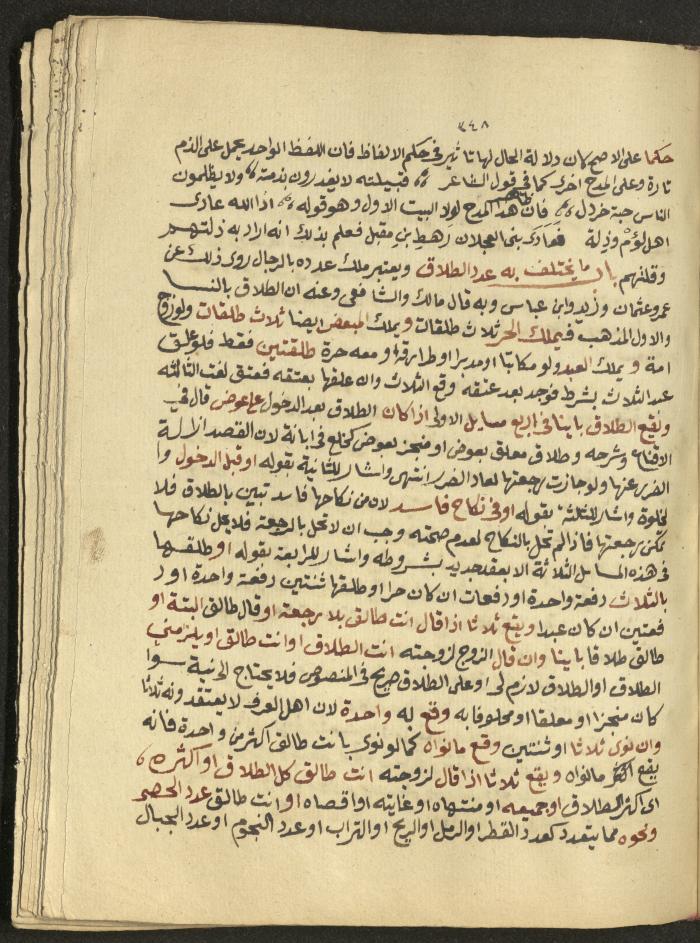 ٣٤٨
حكما على الاصح كان دلالة الحال لها تاثير في حكم الالفاظ فان اللفظ الواحد يحمل على الذم
تارة وعلى المدح اخرى كما في قول الشاعر قبيلته لا يغدرون بذمة ولا يظلمون
الناس حبة خردل فان ظاهره المدح لولا البيت الاول وهو قوله اذا الله عادى
اهل لؤم وذلة فعادى بني العجلان رهط بن مقبل فعلم بذلك انه اراد به ذلتهم
وقلتهم باب ما يختلف به عدد الطلاق ويعتبر ملك عدده بالرجال روى ذلك عن
عمر وعثمان وزيد وابن عباس وبه قال مالك والشافعي وعنه ان الطلاق بالنسا
والاول المذهب فيملك الحر ثلاث طلقات ويملك المبعض ايضا ثلاث طلقات ولو زوج
امة ويملك العبد ولو مكاتبا او مدبرا او طرا رقه او معه حرة طلقتين فقط فلو علق
عبد الثلاث بشرط فوجد بعد عتقه وقع الثلاث وان علقها بعتقه فعتق لغت الثالثة
ويقع الطلاق باينا في اربع مسايل الاولى اذا كان الطلاق بعد الدخول على عوض قال في
الاقناع وشرحه وطلاق معلق بعوض او منجز بعوض كخلع في ابانة لان القصد ازالة
الضرر عنها ولو جازت رجعتها لعاد الضرر انتهى واشار للثانية بقوله او قبل الدخول وا
لخلوة واشار للثالثة بقوله او في نكاح فاسد لان من نكاحها فاسد تبين بالطلاق فلا
تمكن رجعتها فاذا لم تحل بالنكاح لعدم صحته وجب ان لا تحل بالرجعة فلا يحل نكاحها
في هذه المسايل الثلاثة الا بعقد جديد بشروطه واشار للرابعة بقوله او طلقها
بالثلاث دفعة واحدة او دفعات ان كان حرا او طلقها ثنتين دفعة واحدة او د
فعتين ان كان عبدا ويقع ثلاثا اذا قال انت طالق بلا رجعة او قال طالق البتة او
طالق طلاقا باينا وان قال الزوج لزوجته انت الطلاق او انت طالق او يلزمني
الطلاق او الطلاق لازم لي او على الطلاق صريح في المنصوص فلا يحتاج الى نية سوا
كان منجزا او معلقا او محلوفا به وقع له واحدة لان اهل العرف لا يعتقدونه ثلاثا
وان نوى ثلاثا او ثنتين وقع ما نواه كما لو نوى بانت طالق اكثر من واحدة فانه
يقع ما نواه ويقع ثلاثا اذا قال لزوجته انت طالق كل الطلاق او اكثره
اي اكثر الطلاق او جميعه او منتهاه او غايته او اقصاه او انت طالق عدد الحصى
ونحوه مما يتعدد كعدد القطر او الرمل او الريح او التراب او عدد النجوم او عدد الجبال